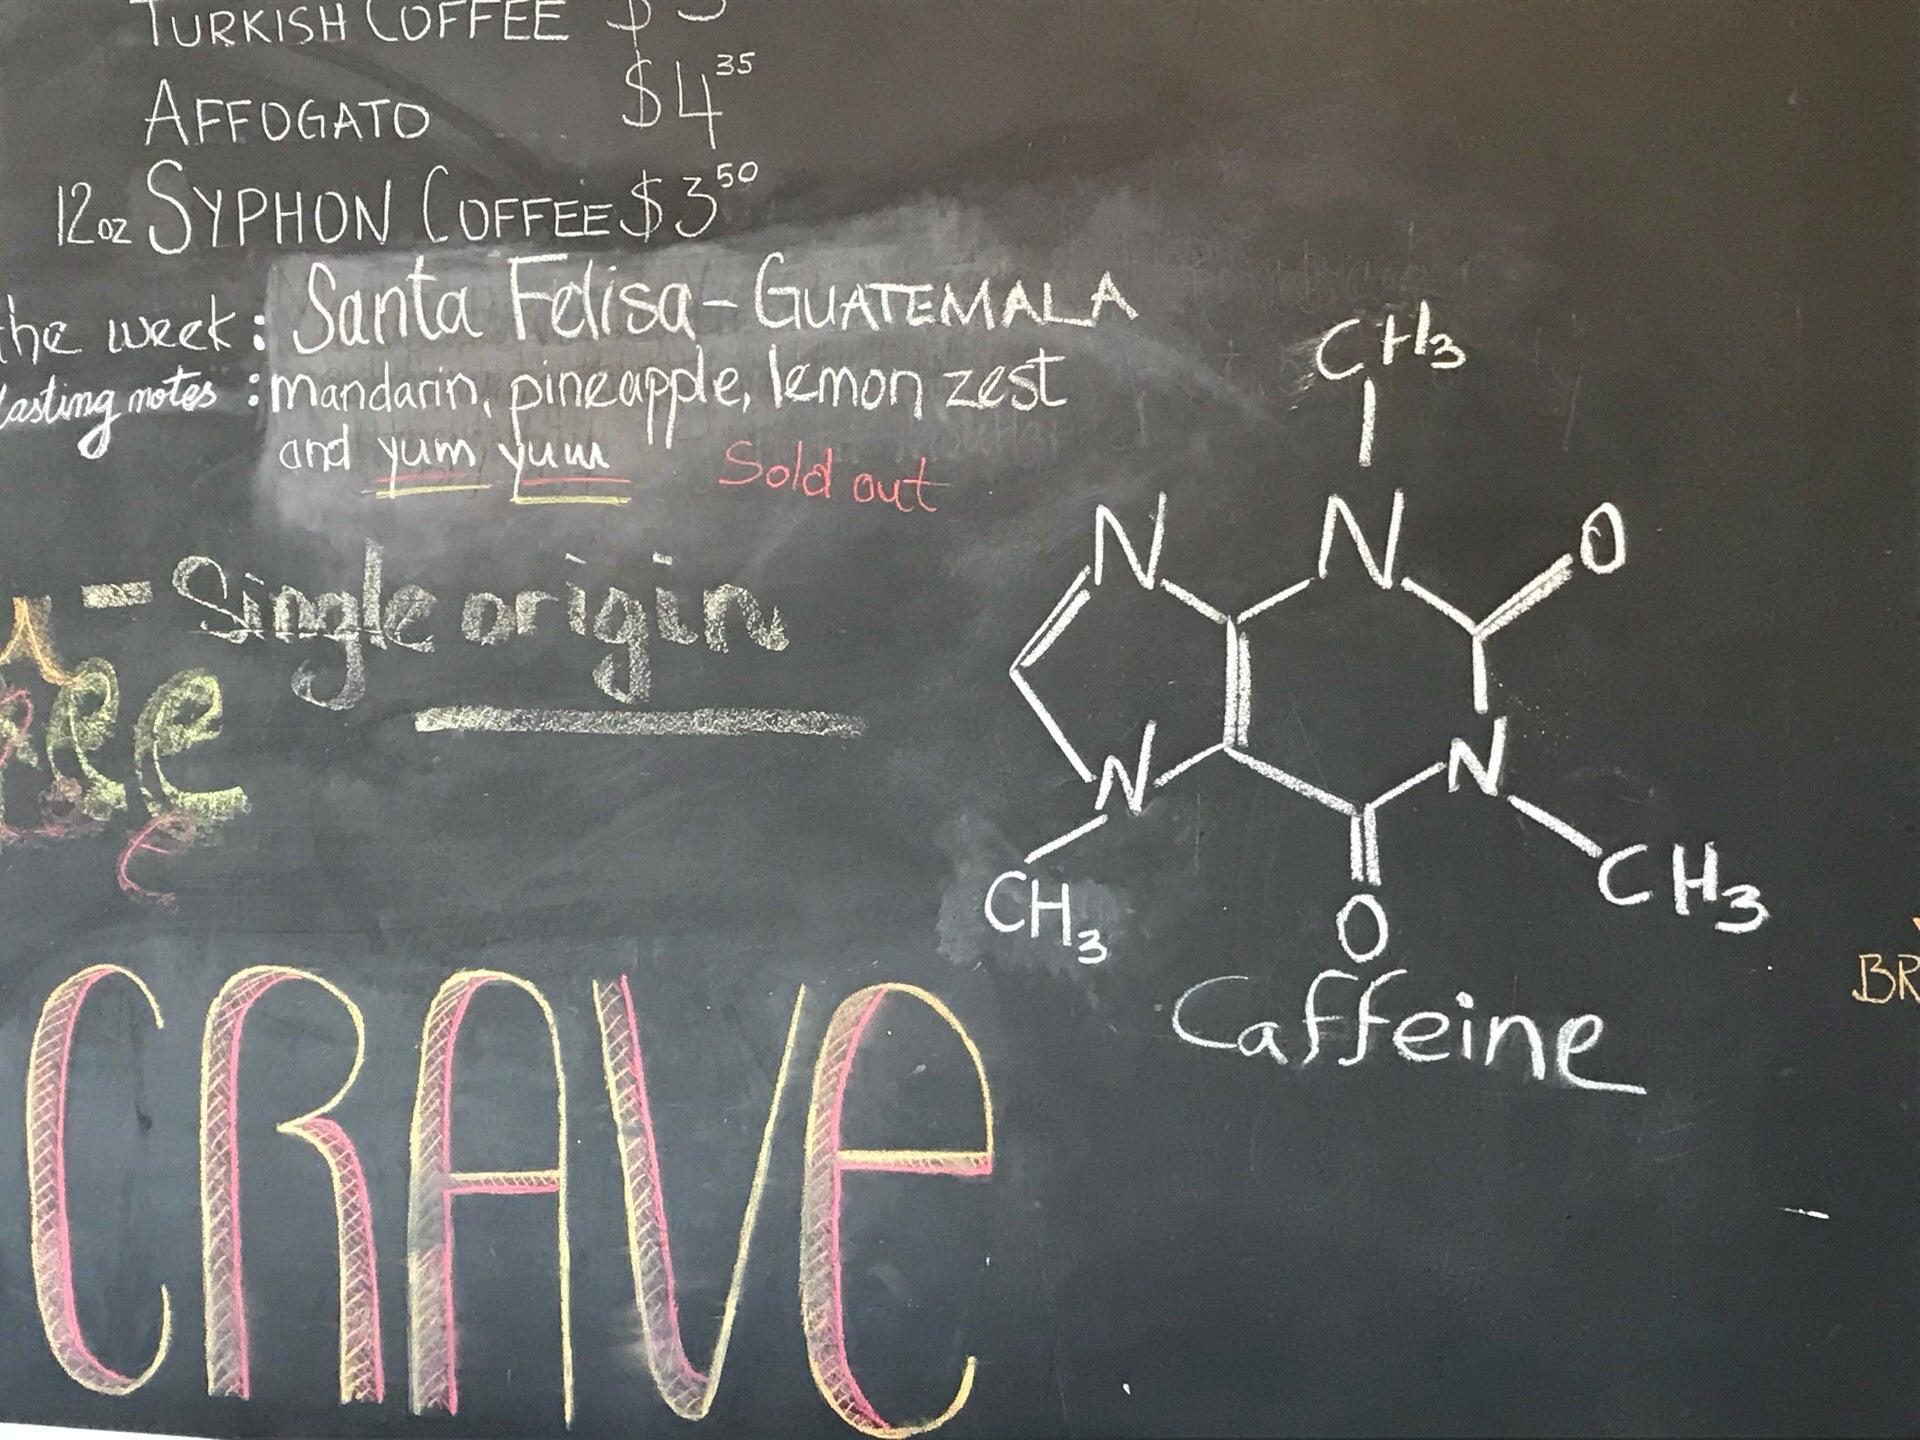 TURKISH COFFEE $3
AFFOGATO $4 35
12oz SYPHON COFFEE $3 50
the week: Santa Felisa - GUATEMALA
tasting notes: mandarin, pineapple, lemon zest
and yum yum Sold out
- Single origin
CRAVe
CH3
N N O
N N
CH3 O CH3
Caffeine
BR